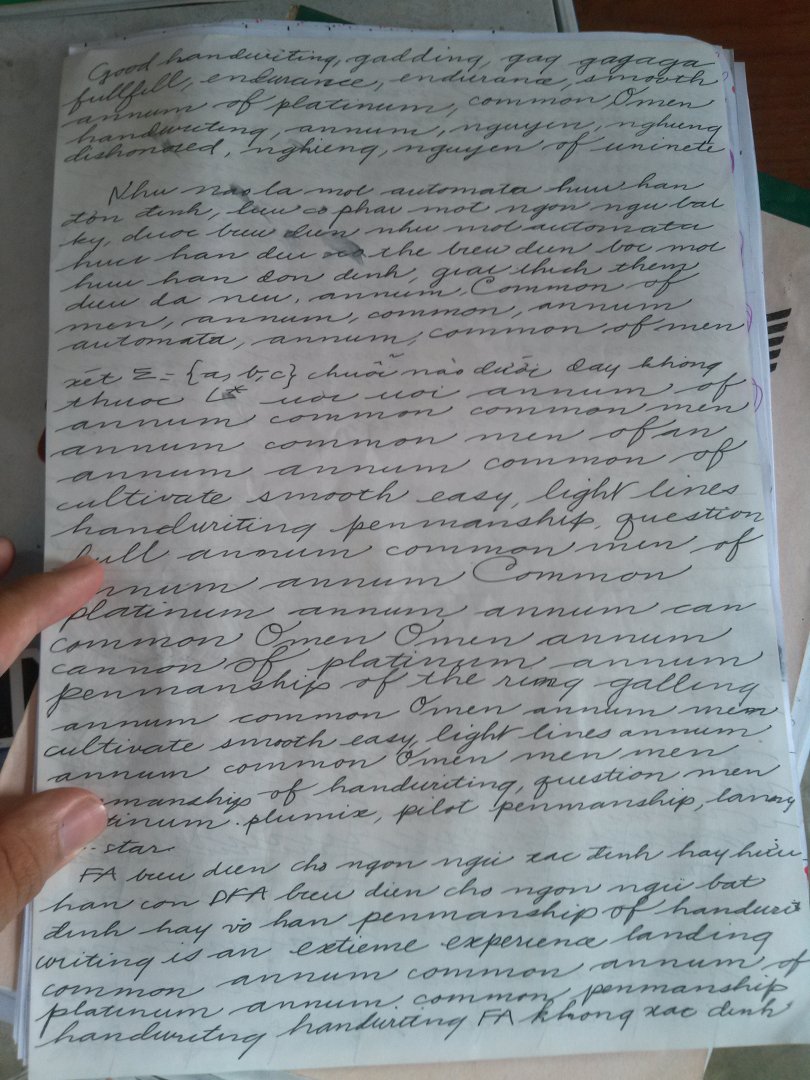 Good handwriting, gadding, gag gagaga
fullfill, endurance, endurance, smooth
annum of platinum, common Omen
handwriting, annum, nguyen, nghieng
dishonored, nghieng, nguyen of
Nhu nao la mot automata huu han
don dinh, luu co phai mot ngon ngu bat
ky, duoc bieu dien nhu mot automata
huu han deu the bieu dien boi mot
huu han don dinh, giai thich them
dieu da neu, annum, Common of
men, annum, common, annum
automata, annum, common of men
xét Σ = {a, b, c} chuỗi nào dưới day không
thuoc L* uoi uoi annum of
annum common common men
annum common men of an
annum annum common of
cultivate smooth easy, light lines
handwriting penmanship, question
full annum common men of
annum annum Common
platinum annum annum can
common Omen Omen annum
cannon of platinum annum
penmanship of the ring galling
annum common Omen annum mem
cultivate smooth easy, light lines annum
annum common Omen men men
manship of handwriting, question men
tinum plumix, pilot penmanship,
star
FA bieu dien cho ngon ngu xac dinh hay hữu
han con DFA bieu dien cho ngon ngu bat
dinh hay vo han penmanship of handwri
writing is an extieme experience landing
common annum common annum of
platinum annum common penmanship
handwriting handwriting FA không xac dinh